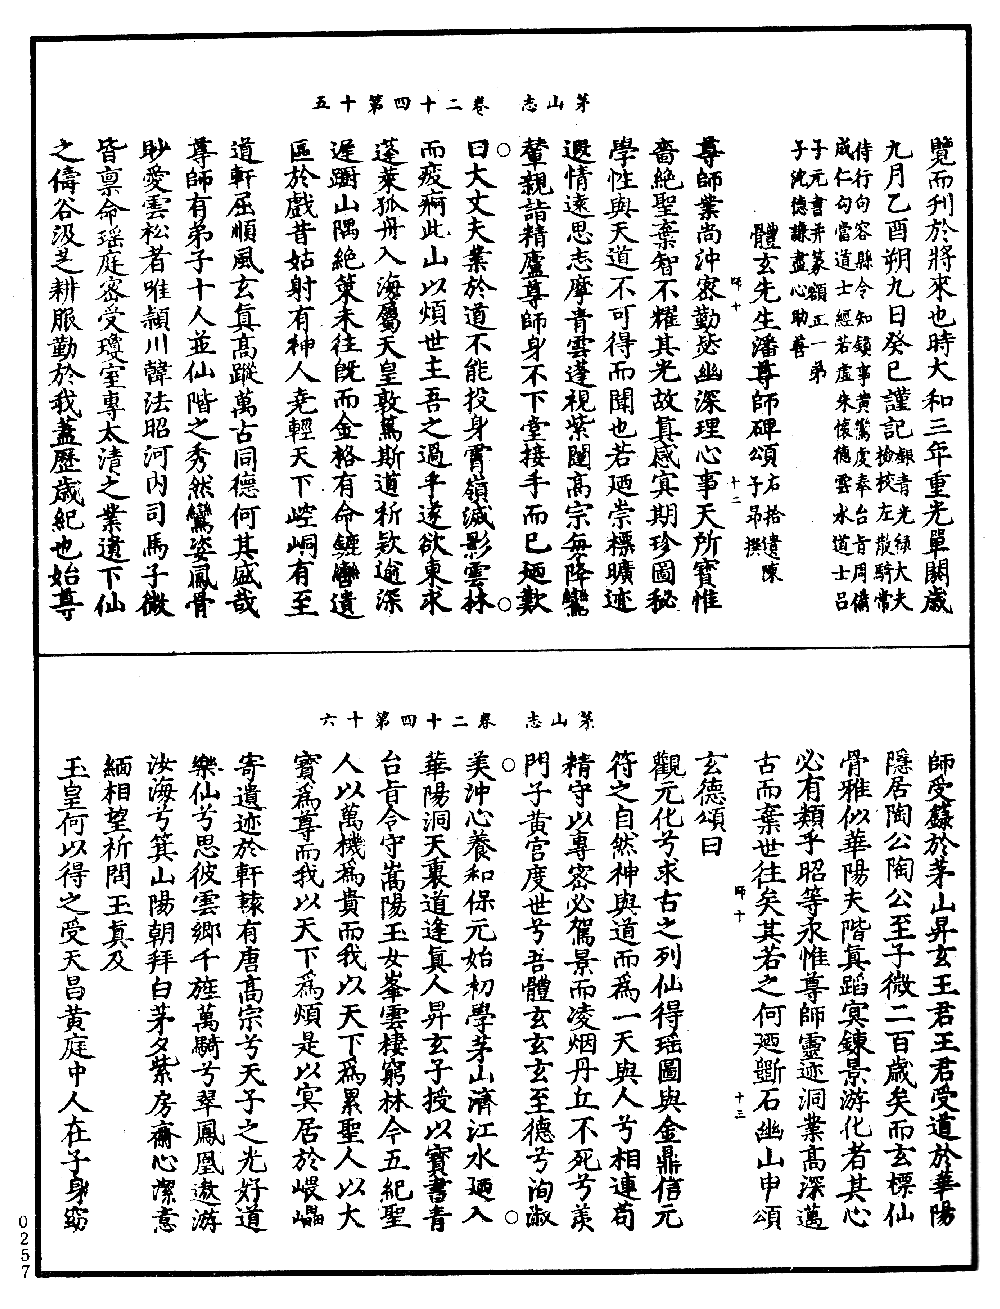 茅山志　卷二十四第十五
覽而刊於將來也時大和三年重光單閼歲
九月乙酉朔九日癸巳謹記銀青光祿大夫檢校左散騎常
侍行句容縣令知鎮事黃鸞度奉台旨周儔
咸仁勾當道士經若虛朱懷德雲水道士呂
子元書并篆額正一弟
子沈德謙盡心助善
體玄先生潘尊師碑頌右拾遺陳子昂撰
師十　十二
尊師業尚沖密勤愨幽深理心事天所寶惟
嗇絕聖棄智不耀其光故真感冥期珍圖秘
學性與天道不可得而聞也若廼崇標曠迹
遐情遠思志摩青雲蓬視紫闥高宗每降鸞
輦親詣精廬尊師身不下堂接手而已廼歎
曰大丈夫業於道不能投身霄嶺滅影雲林
而疲痾此山以煩世主吾之過乎遂欲東求
蓬萊孤舟入海屬天皇敦篤斯道祈款逾深
遲蹰山隅絕策未往既而金輅有命鑣轡遺
區於戲昔姑射有神人堯輕天下崆峒有至
道軒屈順風玄真高蹤萬古同德何其盛哉
尊師有弟子十人並仙階之秀然鸞姿鳳骨
眇愛雲松者唯潁川韓法昭河內司馬子微
皆稟命瑤庭密受瓊室專太清之業遺下仙
之儔谷汲芝耕服勤於我蓋歷歲紀也始尊
茅山志　卷二十四第十六
師受籙於茅山昇玄王君王君受道於華陽
隱居陶公陶公至子微二百歲矣而玄標仙
骨雅似華陽夫階真蹈冥鍊景游化者其心
必有類乎昭等永惟尊師靈迹洞業高深邁
古而棄世往矣其若之何廼斲石幽山申頌
師十　十三
玄德頌曰
觀元化兮求古之列仙得瑶圖與金鼎信元
符之自然神與道而為一天與人兮相連苟
精守以專密必駕景而凌烟丹丘不死兮羡
門子黃宮度世兮吾體玄玄玄至德兮洵淑
美沖心養和保元始初學茅山濟江水廼入
華陽洞天裏道逢真人昇玄子授以寶書青
台旨令守嵩陽玉女峯雲棲窮林今五紀聖
人以萬機為貴而我以天下為累聖人以大
寶為尊而我以天下為煩是以冥居於嵔㠥
寄遺迹於軒轅有唐高宗兮天子之光好道
樂仙兮思彼雲鄉千旌萬騎兮翠鳳凰遨游
汝海兮箕山陽朝拜白茅夕紫房齋心潔意
緬相望祈問玉真及
玉皇何以得之受天昌黃庭中人在子身窈
0257